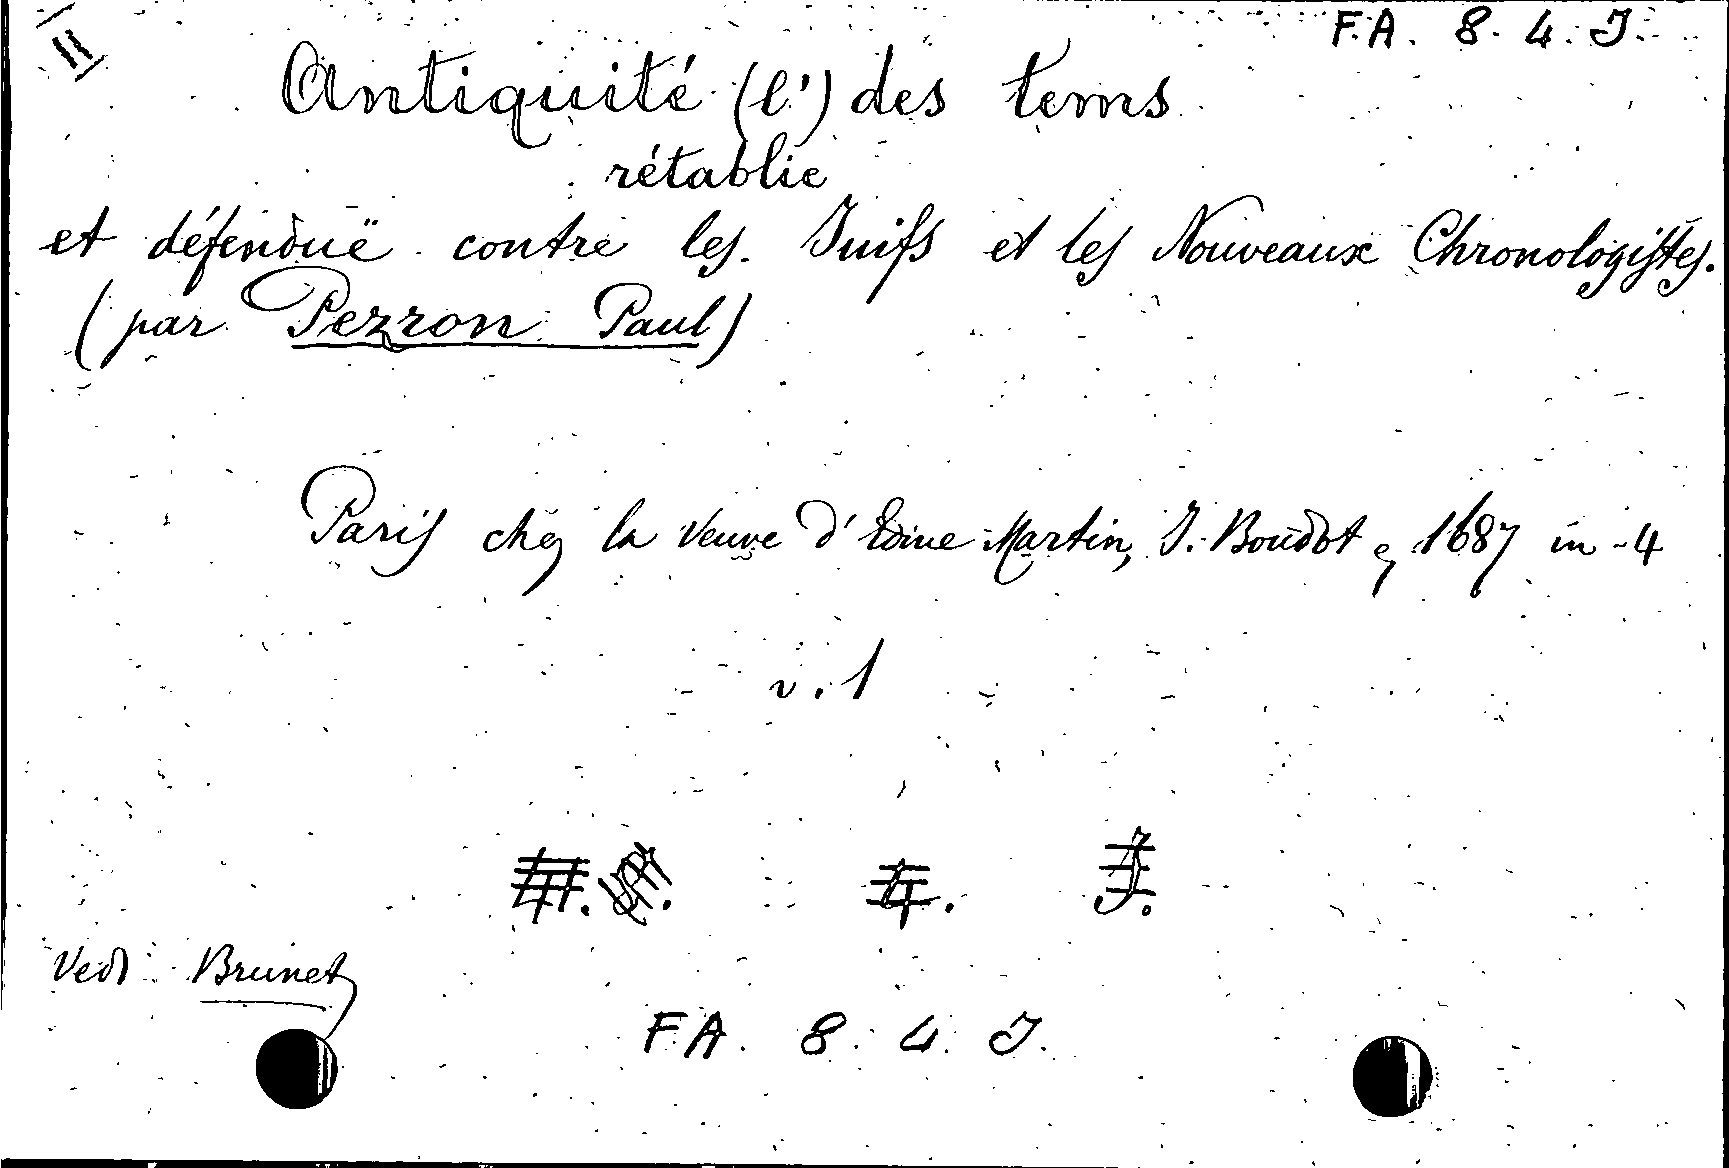 F.A. 8. 4. J.
Antiquité (l') des tems
rétablie
et défenduë contre les Juifs et les Nouveaux Chronologistes.
(par Pezron Paul)
Paris chez la Veuve d'Edme Martin, J. Boudot, 1687 in-4
v. 1
Vedi Brunet
F.A. 8. 4. J.